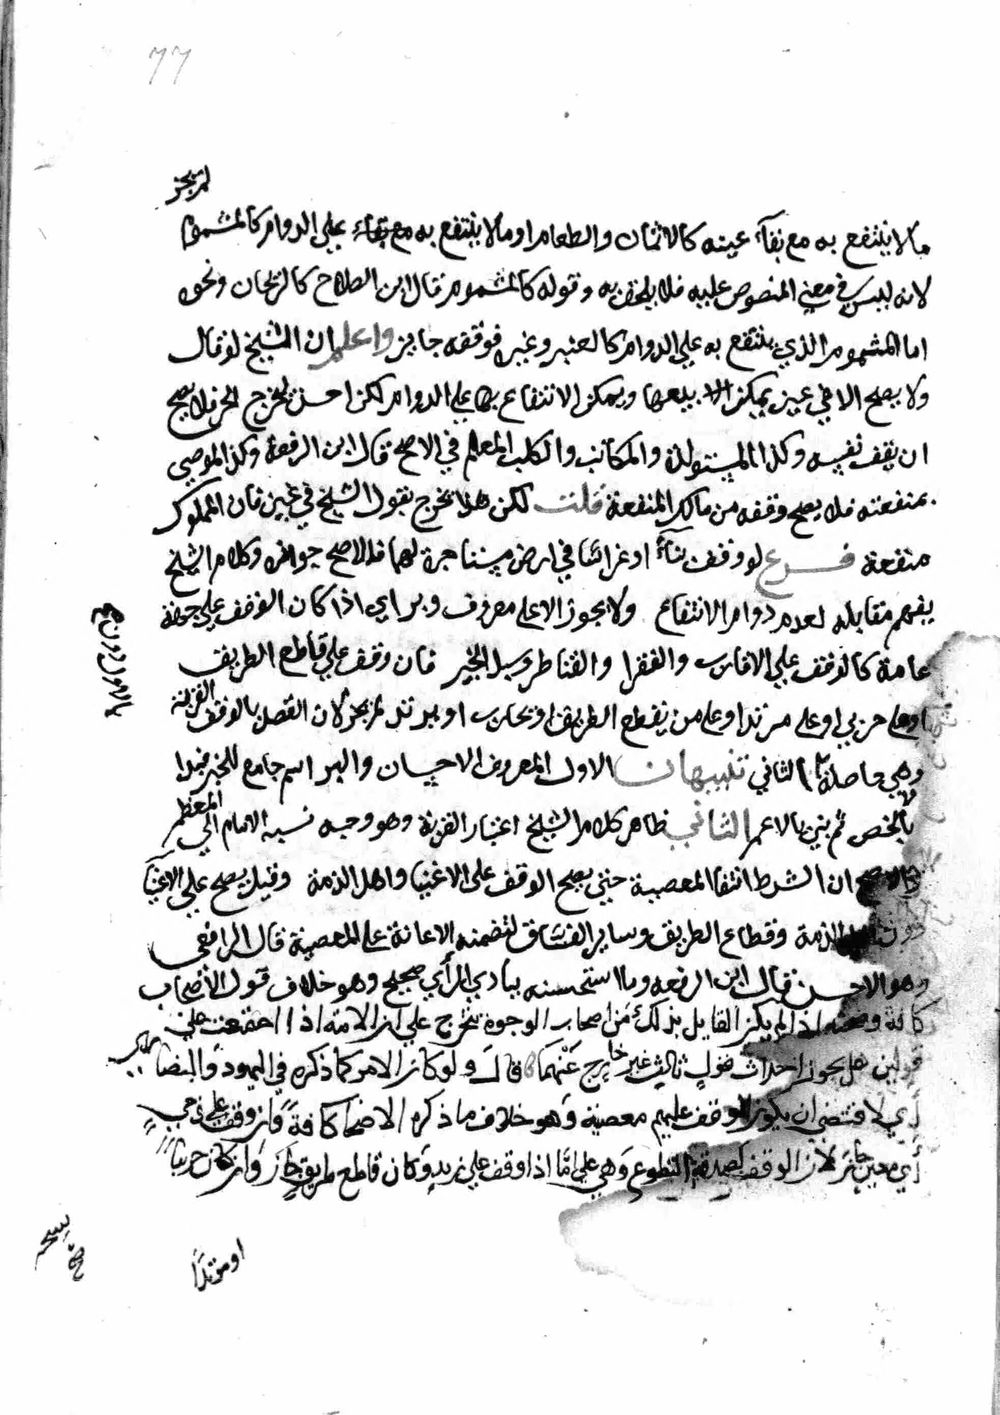 ٦٦
لم يجز
ما لا ينتفع به مع بقآء عينه كالاثمان والطعام او ما لا ينتفع به مع بقآء علي الدوام كالمشموم
لانه ليس في معني المنصوص عليه فلا يلحق به وقوله كالمشموم قال ابن الصلاح كالريحان ونحوه
اما المشموم الذي ينتفع به علي الدوام كالعنبر وغيره فوقفه جايز واعلم ان الشيخ لو قال
ولا يصح الا في عين يمكن بيعها ويمكن الانتفاع بها علي الدوام لكن احسن ليخرج الحر فلا يصح
ان يقف نفسه وكذا المستولدة والمكاتب والكلب المعلم في الاصح قال ابن الرفعة وكذا الموصي
بمنفعته فلا يصح وقفه من مالك المنفعة قلت لكن هذا يخرج بقول الشيخ في عين فان المملوك
منفعة فرع لو وقف بنآء او غراسًا في ارض مستاجرة لهما فالاصح جوازه وكلام الشيخ
يفهم مقابله لعدم دوام الانتفاع ولا يجوز الا على معروف وبر اي اذا كان الوقف علي جهة
عامة كالوقف علي الاقارب والفقرا والقناطر وسبل الخير فان وقف علي قاطع الطريق
او على حربي او على مرتد او على من يقطع الطريق او يحارب او يرتد لم يجز لان القصد بالوقف القربة
وهي حاصلة الثاني تنبيهان الاول المعروف الاحسان والبر اسم جامع للخير فبدا
بالاخص ثم ثني بالاعم الثاني ظاهر كلام الشيخ اعتبار القربة وهو وجه نسبه الامام الي المعظم
والاصح ان الشرط انتفا المعصية حتي يصح الوقف على الاغنيا واهل الذمة وقيل يصح علي الاغنيآ
دون اهل الذمة وقطاع الطريق وساير الفساق لتضمنه الاعانة على المعصية قال الرافعي
وهو الاحسن قال ابن الرفعه وما استحسنه ببادي الرأي صحيح وهو خلاف قول الأصحاب
كافة وصحته اذا لم يكن القايل بذلك من اصحاب الوجوه تخرج علي ان الامة اذا اجتمعت علي
قولين هل يجوز احداث قول ثالث غير خارج عنهما قال ولو كان الامر كما ذكره في اليهود والنصاري
أي لاقتضي ان يكون الوقف عليهم معصية وهو خلاف ما ذكره الاصحاب كافة وان وقف علي ذمي
أي معين جاز لان الوقف كصدقة التطوع وهي على امّا اذا وقف علي زيد وكان قاطع طريق جاز وان كان حربيًا
او مرتدًا